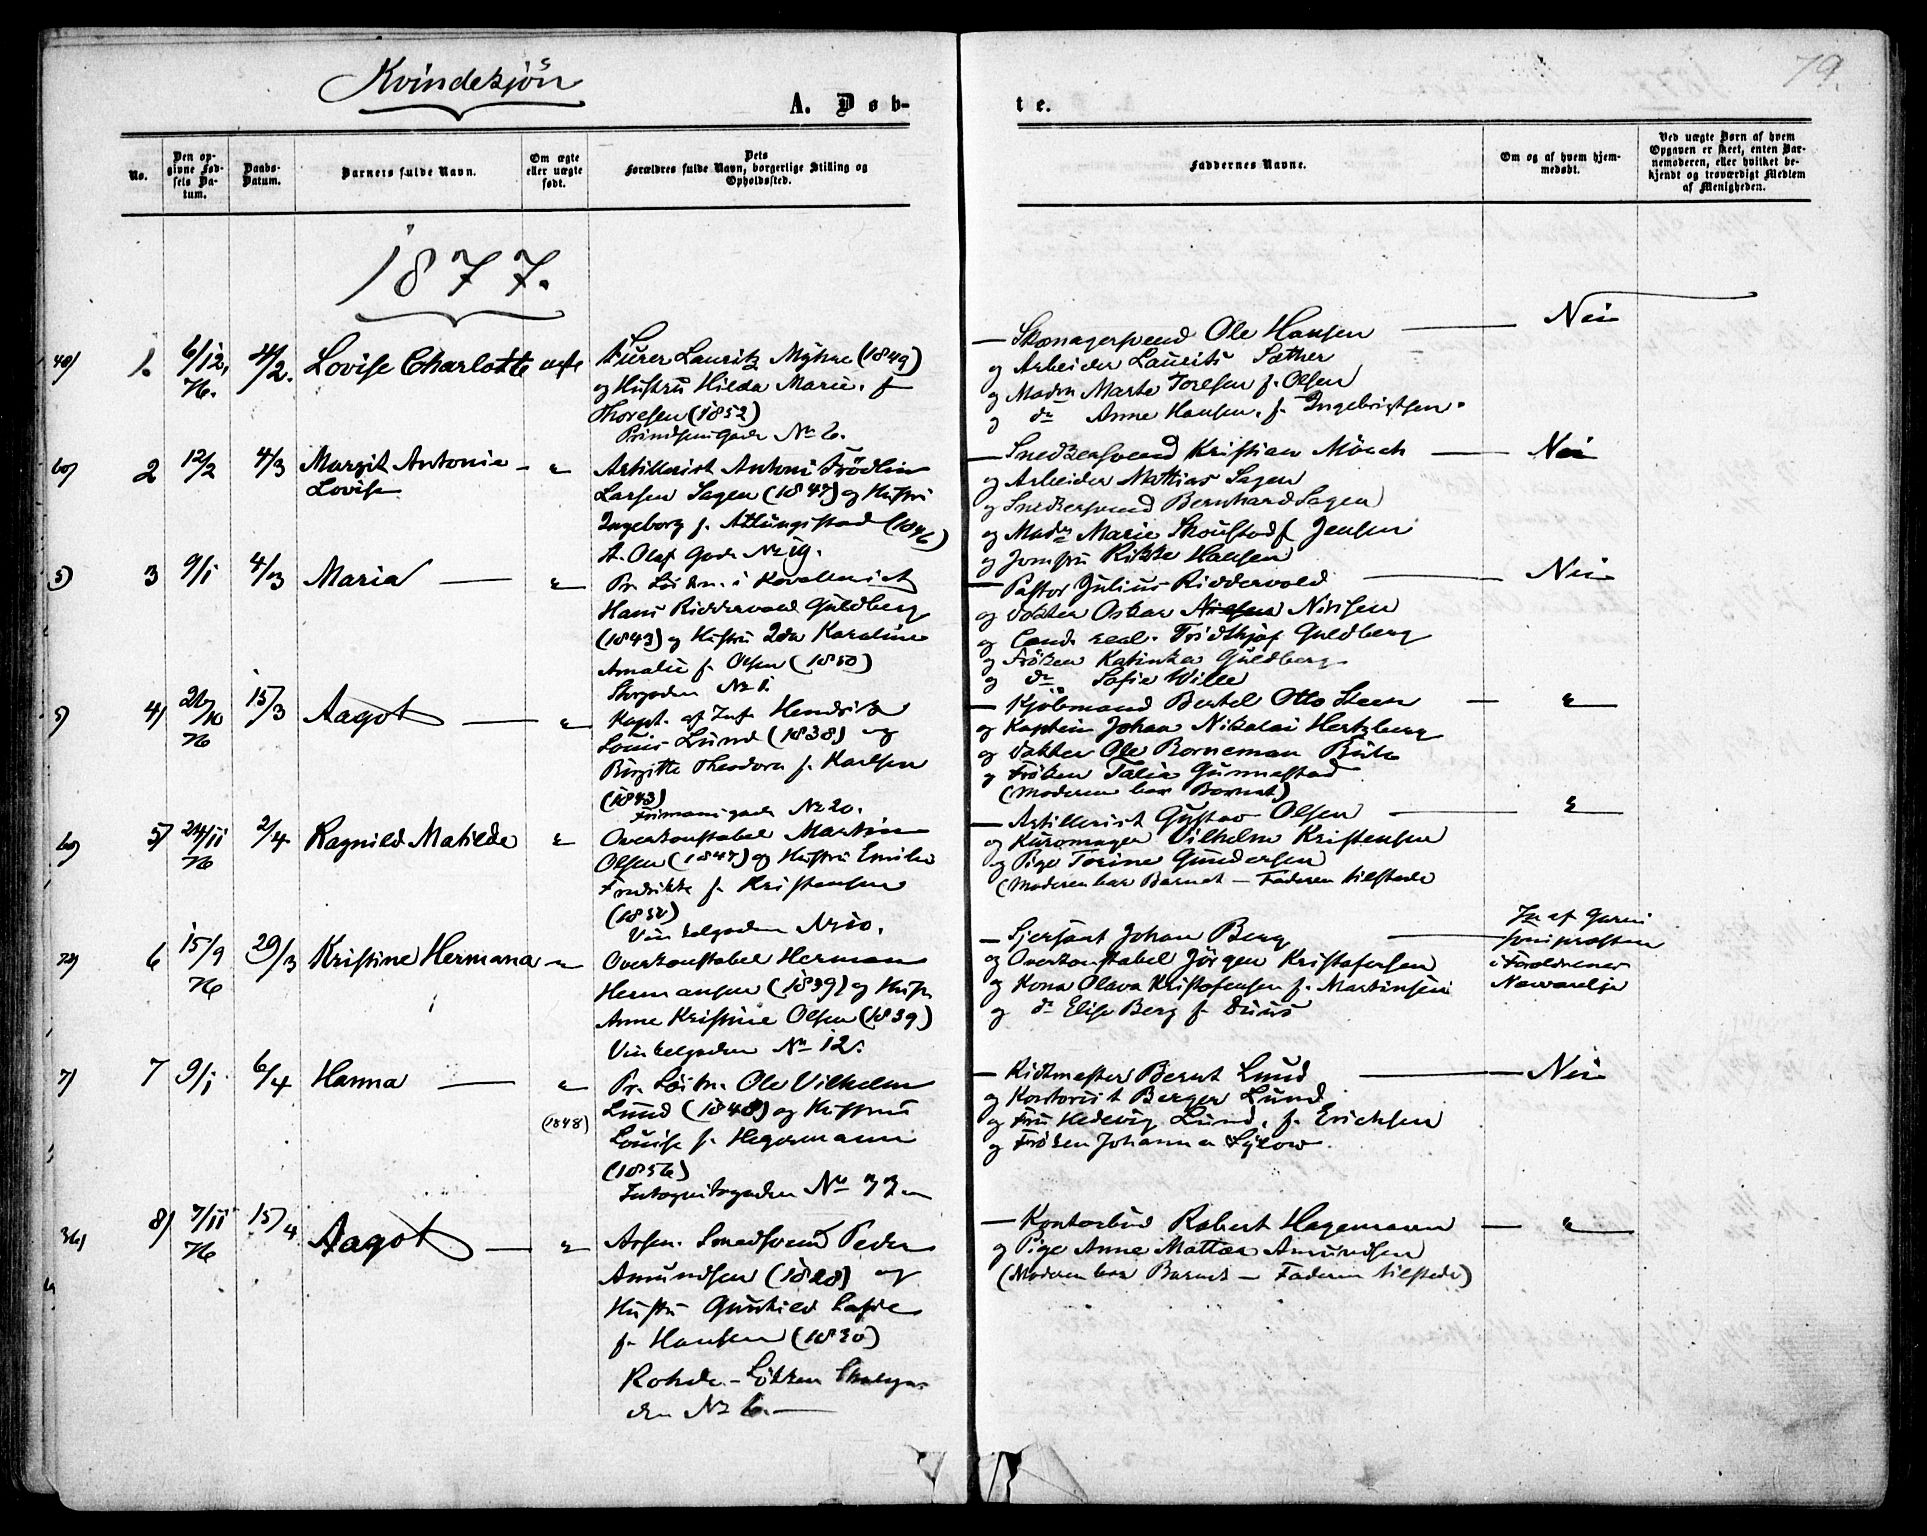 Kvindekjön
79.
A. Døb-
te.
No.
Den op-
givne Fød-
sels Da-
tum.
Daabs-
Datum.
Barnets fulde Navn.
Om ægte
eller uægte
født.
Dets
Forældres fulde Navn, borgerlige Stilling og
Opholdssted.
Faddernes Navne.
Om og af hvem hjem-
medøbt.
Ved uægte Børn af hvem
Opgaven er skeet, enten Bar-
nemoderen, eller hvilket be-
kjendt og troværdigt Medlem
af Menigheden.
1877.
1. 6/12, 76. 4/2. Lovise Charlotte ægte
Lauritz Myhre (1849)
og Hustru Hilda Marie. f
Thoresen (1852)
Prindsensgade No 6.
Ole Hansen
og Arbeider Laurits Sæther
og Madm Marte Toresen f. Olsen
og do Anne Hansen. f. Ingebrigtsen.
Nei
2 12/2 4/3 Margit Antonie
Lovise
Artillerist Antoni Frödlin
Larsen Sagen (1847) og Hustru
Ingeborg f. Attungstad (1846)
St. Olafs Gade No 19.
— Snedkersvend Kristian Mönch
og Arbeider Mattias Sagen
og Snedkersvend Bernhard Sagen
og Madm Marie Skoustad f Jensen
og Jomfru Rikke Hansen
Nei
5) 3 9/1 4/3 Maria
Pr. Löitn. i Kavalleriet
Hans Riddervold Guldberg
(1843) og Hustru Ida Karoline
Amalie f. Olsen (1850)
Storgaden No 1.
— Pastor Julius Riddervold
og Doktor Oskar Nissen
og Cand. real. Fridthjof Guldberg
og Fröken Katinka Guldberg
og do Sofie Wille
Nei
5) 4) 26/10 76 15/3 Aagot
Kapt. af Inf. Hendrik
Louis Lund (1838) og
Birgitte Theodora f. Karlsen
(1843)
No 20.
— Kjöbmand Bertel Otto Steen
og Kaptein Johan Nikolai Hertzberg
og Doktor Ole Borneman Bull
og Fröken Talia Gunnestad
(Moderen bar Barnet)
5) 24/11 76 2/4 Ragnild Matilde
Overkonstabel Martin
Olsen (1847) og Hustru Emilie
Fredrikke f. Kristensen
(1852)
Vinkelgaden No 10.
— Artillerist Gustav Olsen
og Kuromager Vilhelm Kristensen
og Pige Torine Gundersen
(Moderen bar Barnet — Faderen tilstede
6 15/9 76 29/3 Kristine Hermana
Overkonstabel Herman
Hermansen (1839) og Hustr.
Anne Kristine Olsen (1839)
Vinkelgaden No 12.
— Sjersant Johan Berg
og Overkonstabel Jörgen Kristofersen
og Kona Olava Kristofersen f. Martinsen
og do Elise Berg f. Duus
Ja af Garni
sonspræsten
i Forældrenes
Nærværelse
7) 7 9/1 6/4 Hanna
Pr. Löitn. Ole Vilhelm
Lund (1848) og Hustru
(1848)
Louise f. Hegermann
(1856)
No 33
— Ridtmester Bernt Lund
og Kontorist Berger Lund
og Fru Hedevig Lund, f. Erichsen
og Fröken Johanna Sylow.
Nei
36) 8) 7/11 76 15/4 Aagot
Arsen. Smedsvend Peder
Amundsen (1828) og
Hustru Gunhild Sofie
f. Hansen (1830)
Rohde-Lökken
den No 6.
— Kontorbud Robert Hagemann
og Pige Anne Mattea Amundsen
(Moderen bar Barnet — Faderen tilstede)